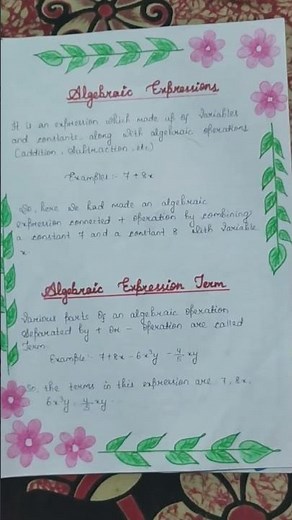 Algebraic Expressions
It is an expression which made up of variables
and constants, along with algebraic operations
(addition, subtraction, etc)
Examples:- 7 + 8x
So, here we had made an algebraic
expression connected + operation by combining
a constant 7 and a constant 8 with variable
x.
Algebraic Expression Term
Various parts of an algebraic operation
separated by + or - operation are called
Term.
Example:- 7+8x - 6x³y -
xy
So the terms in this expression are 7, 8x,
6x³y,
xy